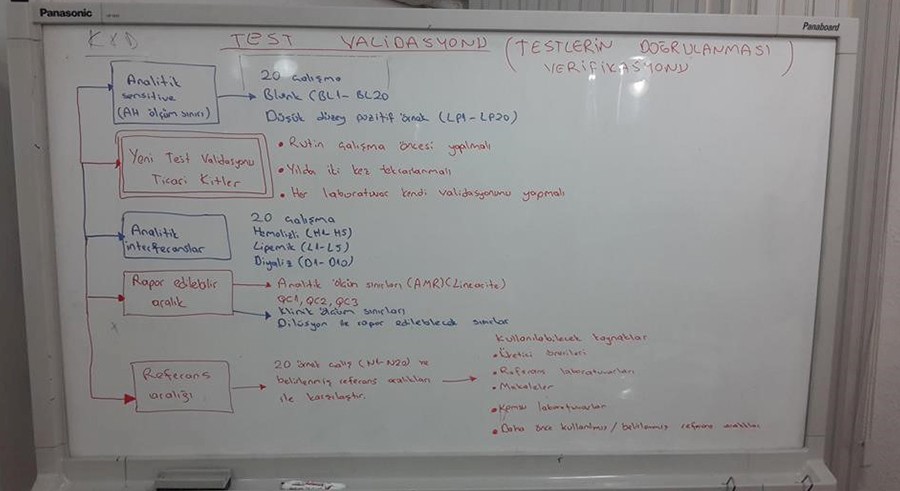 Panasonic
Panaboard
KKD
TEST VALIDASYONU (TESTLERİN DOĞRULANMASI
VERİFİKASYONU
Analitik
sensitive
(Alt ölçüm sınırı)
20 çalışma
Blank (BL1- BL20
Düşük düzey pozitif örnek (LP1-LP20)
Yeni Test Validasyonu
Ticari Kitler
• Rutin çalışma öncesi yapılmalı
• Yılda iki kez tekrarlanmalı
• Her laboratuvar kendi validasyonunu yapmalı
Analitik
interferanslar
20 çalışma
Hemolizli (H1-H5)
Lipemik (L1-L5)
Diyaliz (D1-D10)
Rapor edilebilir
aralık
Analitik ölçüm sınırları (AMR)(Linearite)
QC1, QC2, QC3
Klinik ölçüm sınırları
Dilüsyon ile rapor edilebilecek sınırlar
Referans
aralığı
20 örnek çalış (N1-N20) ve
belirlenmiş referans aralıkları
ile karşılaştır.
Kullanılabilecek kaynaklar
• Üretici önerileri
• Referans laboratuvarları
• Makaleler
• Komşu laboratuvarlar
• Daha önce kullanılmış / belirlenmiş referans aralıkları